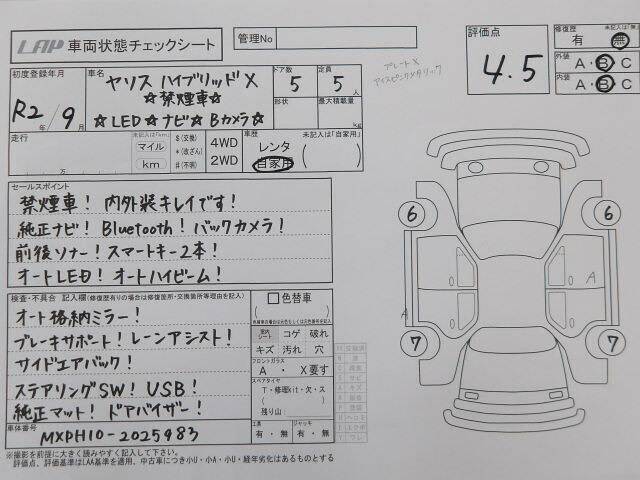 LAP 車両状態チェックシート
管理No
評価点
4.5
修復歴
未記入は「無」
有 無
外装
A・B・C
内装
A・B・C
初度登録年月
R2年/9月
車名
ヤリス ハイブリッドX
☆禁煙車☆
☆LED☆ナビ☆Bカメラ☆
ドア数
5
定員
5人
形状
最大積載量
kg
プレートX
アイスピンクメタリック
走行
万
未記入は「km」
マイル
km
$(交換)
*(改ざん)
#(不明)
4WD
2WD
車歴
未記入は「自家用」
レンタ
自家用
セールスポイント
禁煙車! 内外装キレイです!
純正ナビ! Bluetooth! バックカメラ!
前後ソナー! スマートキー2本!
オートLED! オートハイビーム!
検査・不具合 記入欄(修復歴有りの場合は修復箇所・交換箇所等理由を記入)
オート格納ミラー!
ブレーキサポート! レーンアシスト!
サイドエアバック!
ステアリングSW! USB!
純正マット! ドアバイザー!
□色替車
( )
室内
シート
コゲ 破れ
キズ 汚れ 穴
フロントガラス
A ・ X要す
スペアタイヤ
T・修理kit・欠・ス
( )
残り山
工具
有・無
ジャッキ
有・無
車体番号
MXPH10-2025983
※撮影を前提に大きく読みやすく記入して下さい。
評価点、評価基準はLAA基準を適用、中古車につき小U・小A・小U・経年劣化はあるものとする
6
6
A
A
7
7